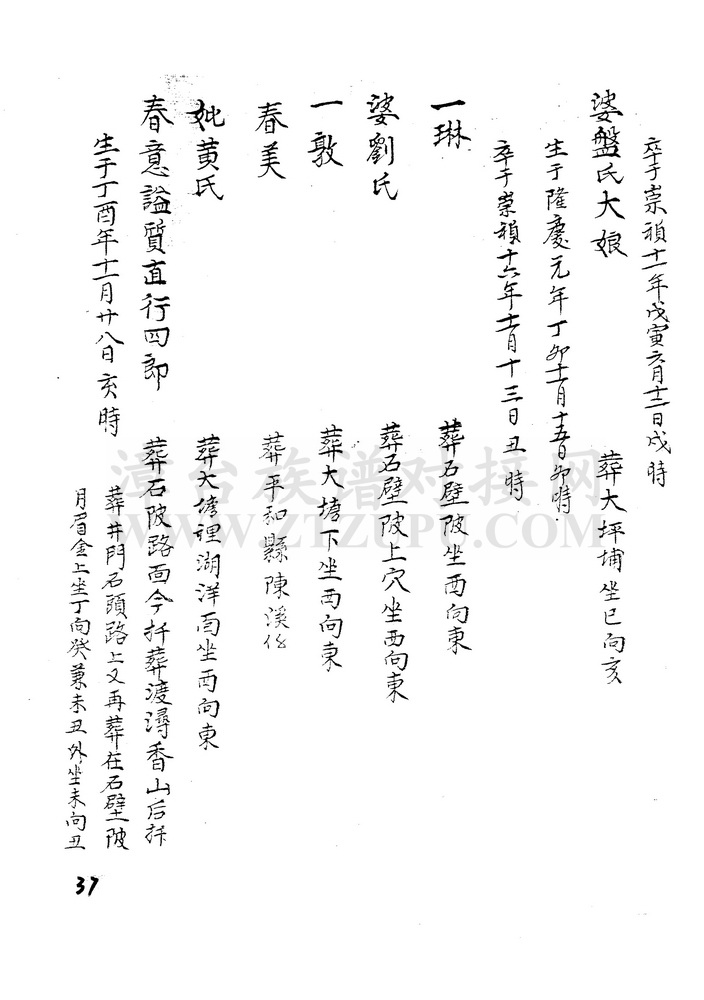 卒于崇禎十一年戊寅六月十三日戌時
婆盤氏大娘 葬大坪埔坐巳向亥
生于隆慶元年丁卯十一月十五日卯時
卒于崇禎十六年十一月十三日丑時
一琳 葬石壁陂坐西向東
婆劉氏 葬石壁陂上穴坐西向東
一敦 葬大塘下坐西向東
春美 葬平和縣陳溪
妣黄氏 葬大塘裡湖洋面坐西向東
春意謚質直行四郎 葬石陂路面今扦葬渡潯香山后扦
生于丁酉年十一月廿八日亥時 葬井門石頭路上又再葬在石壁陂
月眉金上坐丁向癸兼未丑外坐未向丑
37
漳台族谱对接网
WWW.ZTZUPU.COM